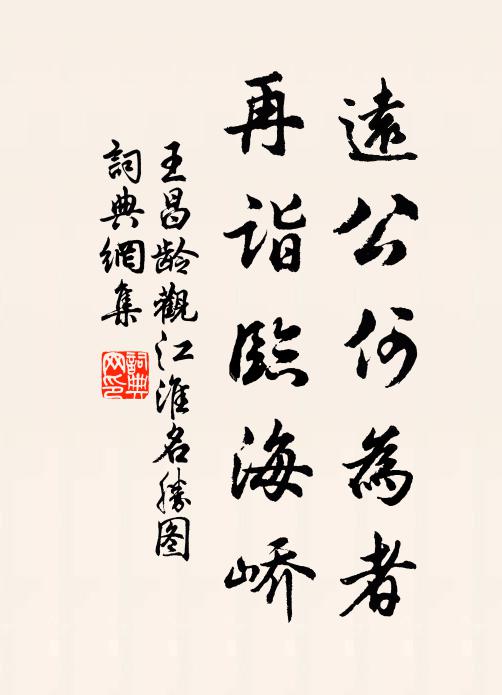 遠公何為者
再詣臨海嶠
王昌龄觀江淮名勝图
詞典網集
詞典网印